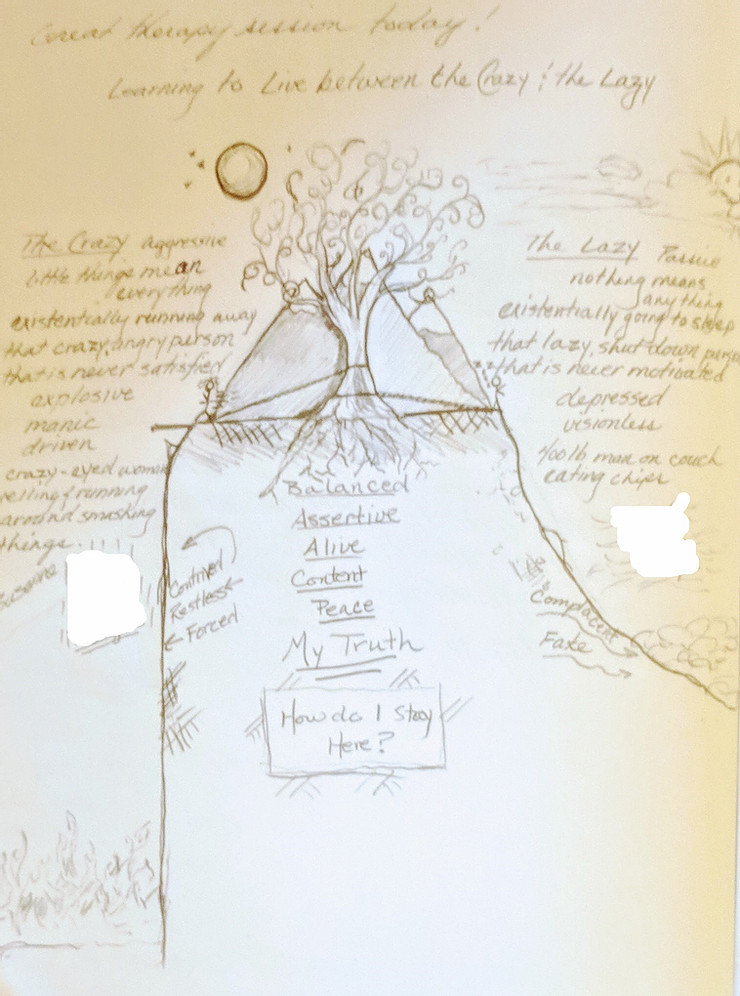 Great therapy session today!
Learning to Live between the Crazy & the Lazy
The Crazy aggressive
little things mean
everything
existentially running away
that crazy, angry person
that is never satisfied
explosive
manic
driven
crazy-eyed woman
yelling & running
around smashing
things.
The Lazy Passive
nothing means
anything
existentially going to sleep
that lazy, shut down person
that is never motivated
depressed
visionless
400 lb man on couch
eating chips
Balanced
Assertive
Alive
Content
Peace
My Truth
How do I stay
Here?
Contrived
Restless
Forced
Complacent
Fake